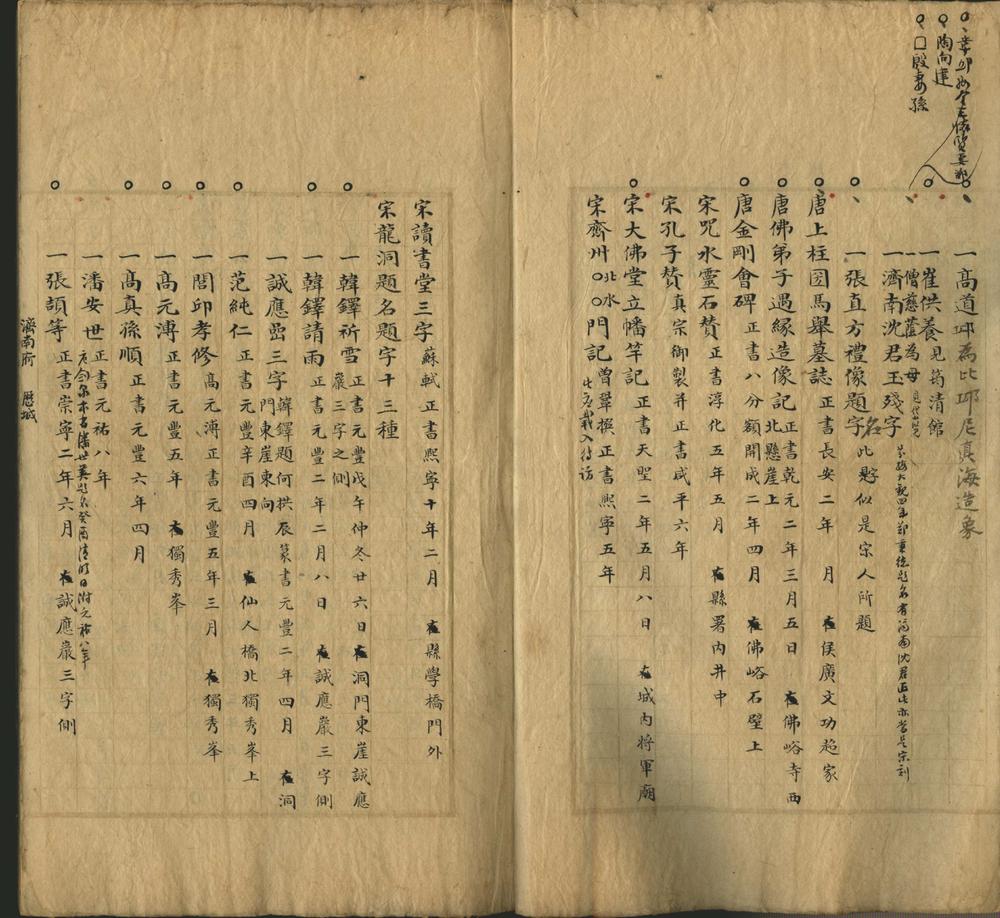 陶向達
□殷妻孫
一高道邱為比邱尼真海造象
一崔供養見筠清館
一僧慈薀為母
一濟南沈君玉殘字
一張直方禮像題字名此懸似是宋人所題
唐上柱國馬舉墓誌正書長安二年　月　在侯廣文功超家
唐佛弟子遇緣造像記正書乾元二年三月五日　在佛峪寺西北懸崖上
唐金剛會碑正書八分額開成二年四月　在佛峪石壁上
宋咒水靈石贊正書淳化五年五月　在縣署內井中
宋孔子贊真宗御製并正書咸平六年
宋大佛堂立幡竿記正書天聖二年五月八日　在城內將軍廟
宋齊州北水門記曾鞏撰正書熙寧五年
此應載入待訪
宋讀書堂三字蘇軾正書熙寧十年二月　在縣學橋門外
宋龍洞題名題字十三種
一韓鐸祈雪正書元豐戊午仲冬廿六日　在洞門東崖誠應巖三字之側
一韓鐸請雨正書元豐二年二月八日　在誠應巖三字側
一誠應嵒三字韓鐸題何拱辰篆書元豐二年四月　在洞門東崖東向
一范純仁正書元豐辛酉四月　在仙人橋北獨秀峯上
一閭邱孝修高元溥正書元豐五年三月　在獨秀峯
一高元溥正書元豐五年　在獨秀峯
一高真孫順正書元豐六年四月
一潘安世正書元祐八年
一張頡等正書崇寧二年六月　在誠應巖三字側
濟南府　歷城